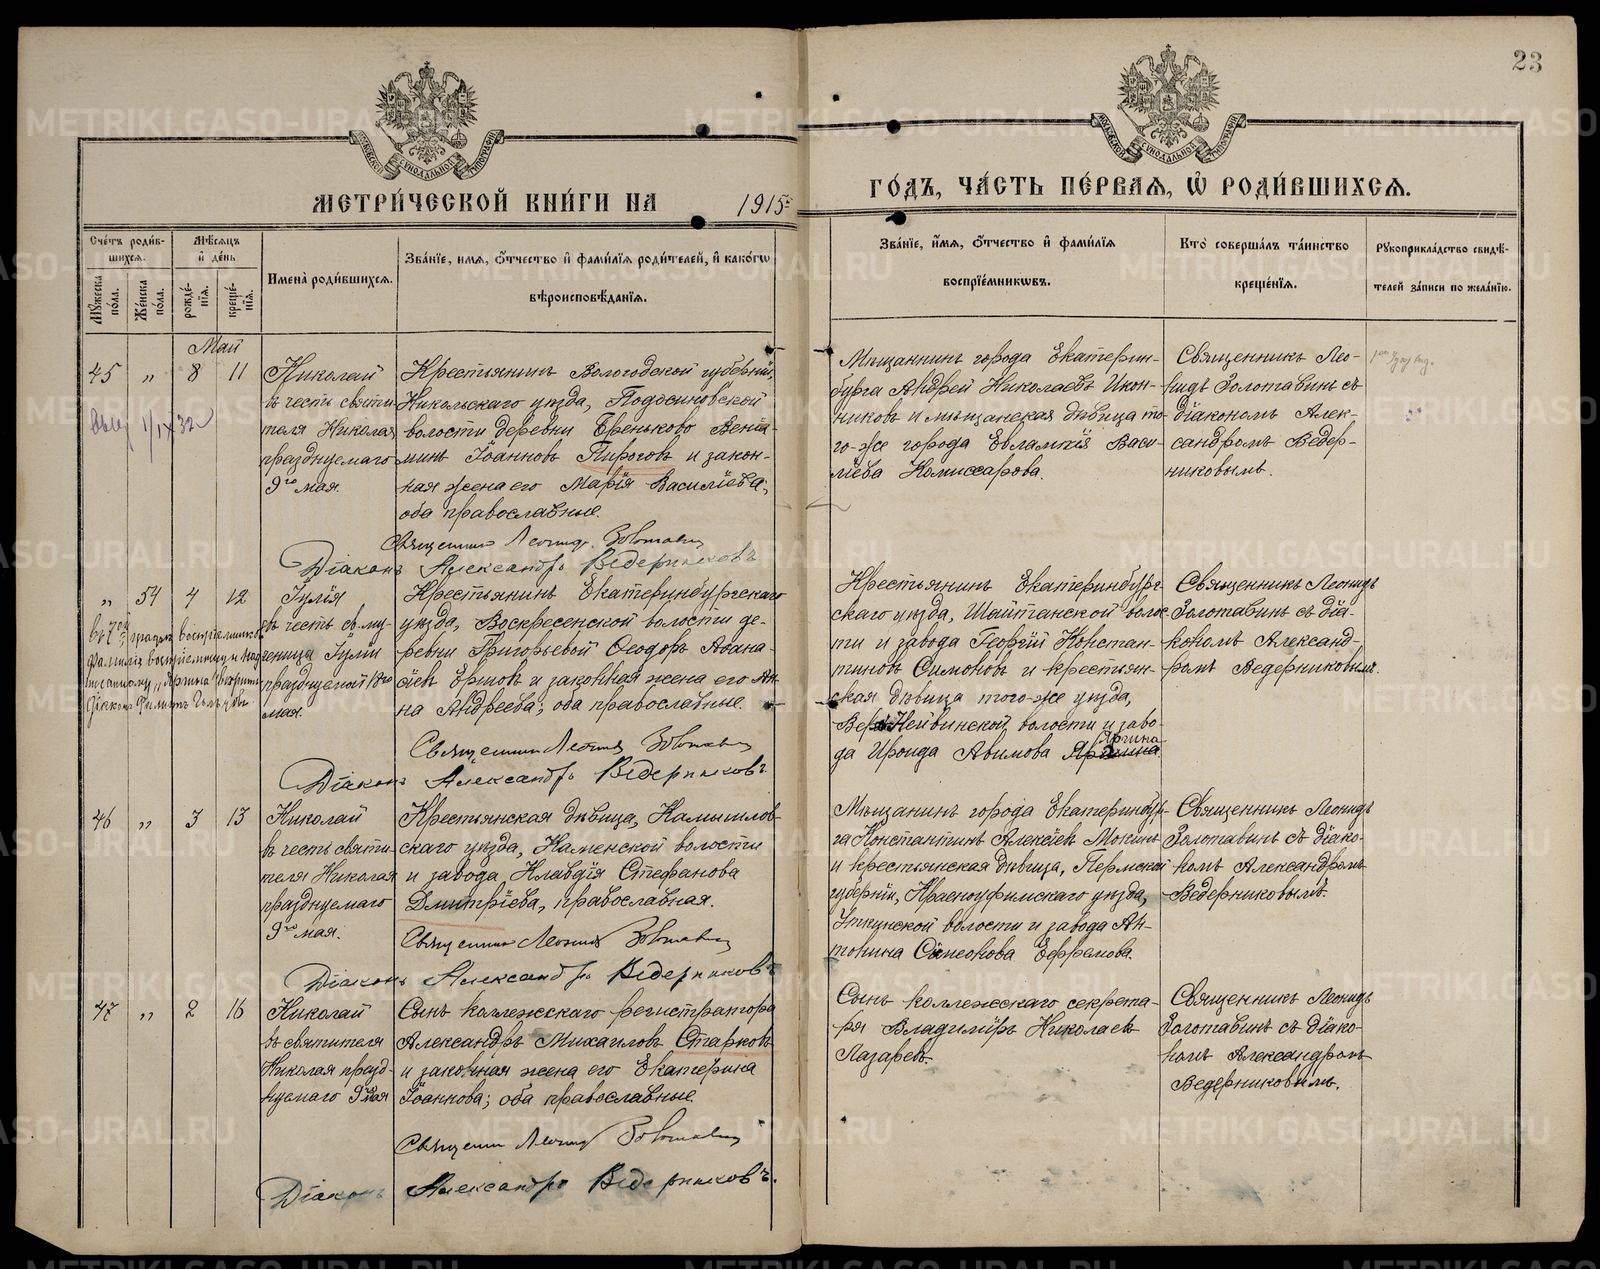 23
МЕТРИ́ЧЕСКОЙ КНИ́ГИ НА 1915
ГО́ДЪ, ЧА́СТЬ ПЕ́РВАЯ, Ѽ РОДИ́ВШИХСЯ.
Сче́тъ роди́в-
шихся.
Му́жеска по́ла.
Же́нска по́ла.
Мѣ́сяцъ
и де́нь
рожде́-
нїя.
креще́-
нїя.
Имена̀ роди́вшихся.
Зва́нїе, имя, о́тчество и фами́лїя роди́телей, и како́гѡ
вѣроисповѣ́данїя.
Зва́нїе, и́мя, о́тчество и фами́лїя
воспрїе́мникѡвъ.
Кто̀ соверша́лъ та́инство
креще́нїя.
Рукоприкла́дство свидѣ́-
телей за́писи по жела́нїю.
Май
45 „ 8 11
Николай
въ честь святи-
теля Николая
празднуемаго
9го мая.
Крестьянинъ Вологодской губерніи,
Никольскаго уѣзда, Подосиновской
волости деревни Бреньково Веніа-
минъ Іоанновъ Пироговъ и закон-
ная жена его Марія Василіева,
оба православные.
Священникъ Леонидъ Золотавинъ
Діаконъ Александръ Ведерниковъ
Мѣщанинъ города Екатерин-
бурга Андрей Николаевъ Икон-
никовъ и мѣщанская дѣвица то-
го-же города Евлампія Васи-
ліева Комиссарова.
Священникъ Лео-
нидъ Золотавинъ съ
діакономъ Алек-
сандромъ Ведер-
никовымъ.
„ 54 4 12
Іулія
въ честь св. му-
ченицы Іуліи
празднуемой 18го
мая.
Крестьянинъ Екатеринбургскаго
уѣзда, Воскресенской волости де-
ревни Григорьевой Ѳеодоръ Аѳана-
сіевъ Ершовъ и законная жена его Ан-
на Андреева; оба православные.
Священникъ Леонидъ Золотавинъ
Діаконъ Александръ Ведерниковъ.
Крестьянинъ Екатеринбург-
скаго уѣзда, Шайтанской волос-
ти и завода Георгій Констан-
тиновъ Симоновъ и крестьян-
ская дѣвица того-же уѣзда,
Верх-Нейвинской волости и заво-
да Ираида Авимова Яргина
Священникъ Леонидъ
Золотавинъ съ діа-
кономъ Александ-
ромъ Ведерниковымъ.
46 „ 3 13
Николай
въ честь святи-
теля Николая
празднуемаго
9го мая.
Крестьянская дѣвица, Камышлов-
скаго уѣзда, Каменской волости
и завода, Клавдія Стефанова
Дмитріева, православная.
Священникъ Леонидъ Золотавинъ
Діаконъ Александръ Ведерниковъ
Мѣщанинъ города Екатеринбур-
га Константинъ Алексіевъ Мокинъ
и крестьянская дѣвица, Пермской
губерніи, Красноуфимскаго уѣзда,
Уткинской волости и завода Ан-
тонина Симеонова Ефремова.
Священникъ Леонидъ
Золотавинъ съ діако-
номъ Александромъ
Ведерниковымъ.
47 „ 2 16
Николай
въ святителя
Николая празд-
нуемаго 9го мая
Сынъ коллежскаго регистратора
Александръ Михаиловъ Старковъ
и законная жена его Екатерина
Іоаннова; оба православные.
Священникъ Леонидъ Золотавинъ
Діаконъ Александръ Ведерниковъ.
Сынъ коллежскаго секрета-
ря Владиміръ Николаевъ
Лазаревъ.
Священникъ Леонидъ
Золотавинъ съ діако-
номъ Александромъ
Ведерниковымъ.
METRIKI.GASO-URAL.RU